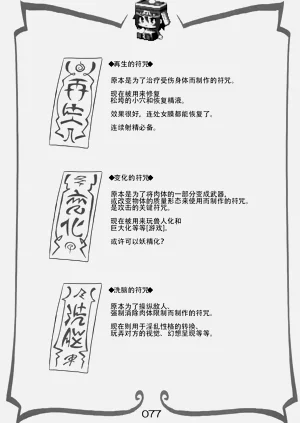 ◆再生的符咒◆
再生
原本是为了治疗受伤身体而制作的符咒。
现在被用来修复
松垮的小穴和恢复精液。
效果很好，连处女膜都能恢复了。
连续射精必备。
◆变化的符咒◆
变化
原本是为了将肉体的一部分变成武器，
或改变物体的质量形态来使用而制作的符咒。
是攻击的关键符咒。
现在被用来玩兽人化和
巨大化等等[游戏]。
或许可以妖精化?
◆洗脑的符咒◆
洗脳
原本为了操纵敌人，
强制消除肉体限制而制作的符咒。
现在则用于淫乱性格的转换、
玩弄对方的视觉、幻想呈现等等。
077